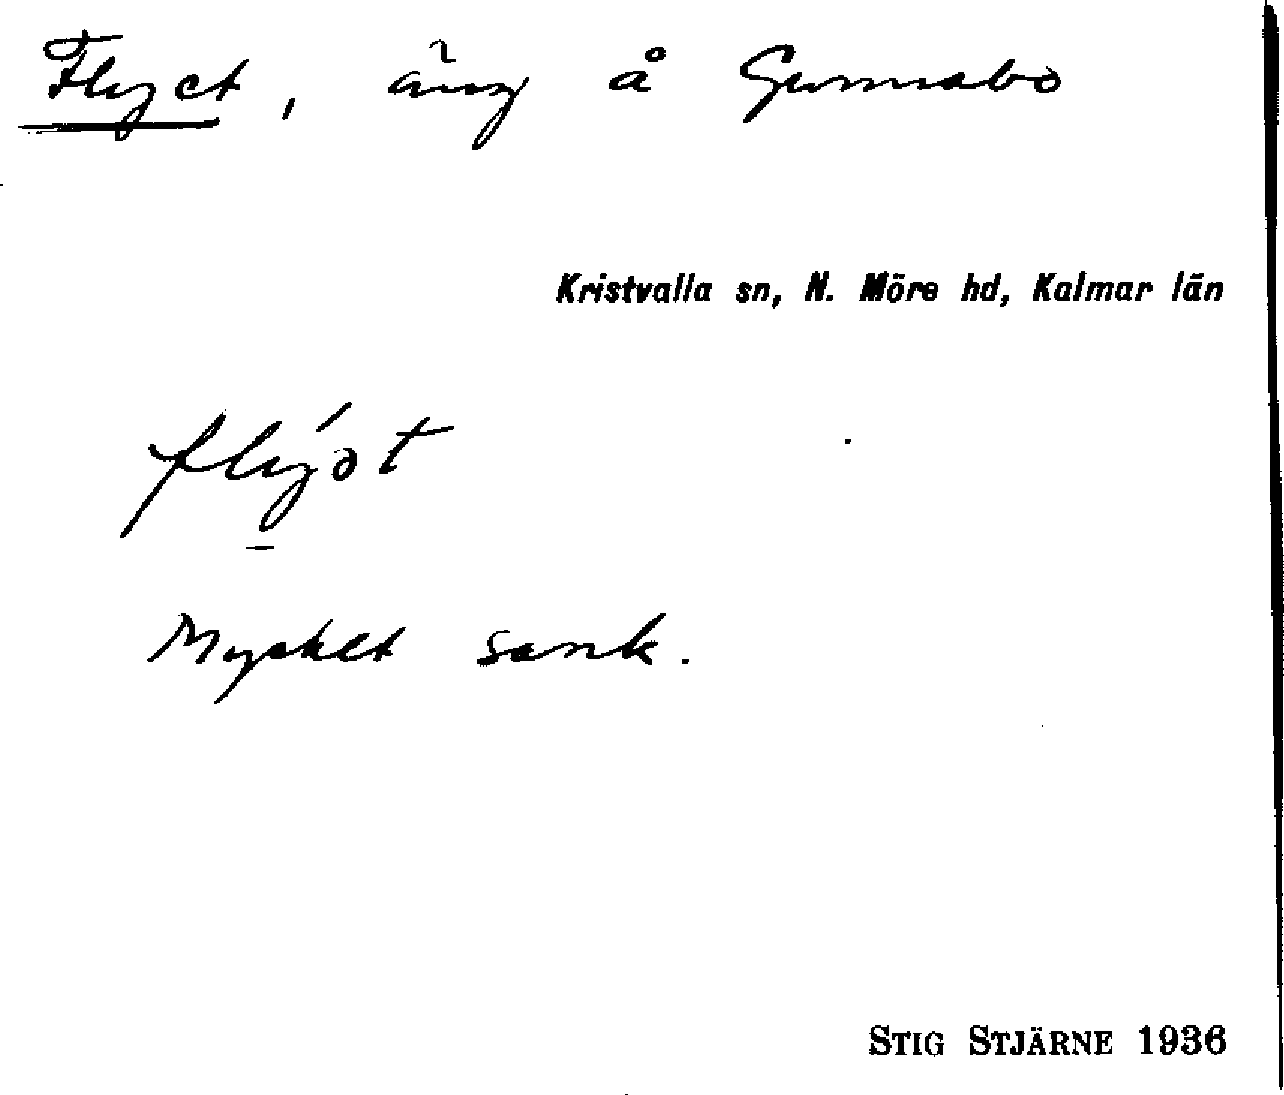 Flyet, äng å Gunnabo
Kristvalla sn, N. Möre hd, Kalmar län
Mycket sank.
STIG STJÄRNE 1936